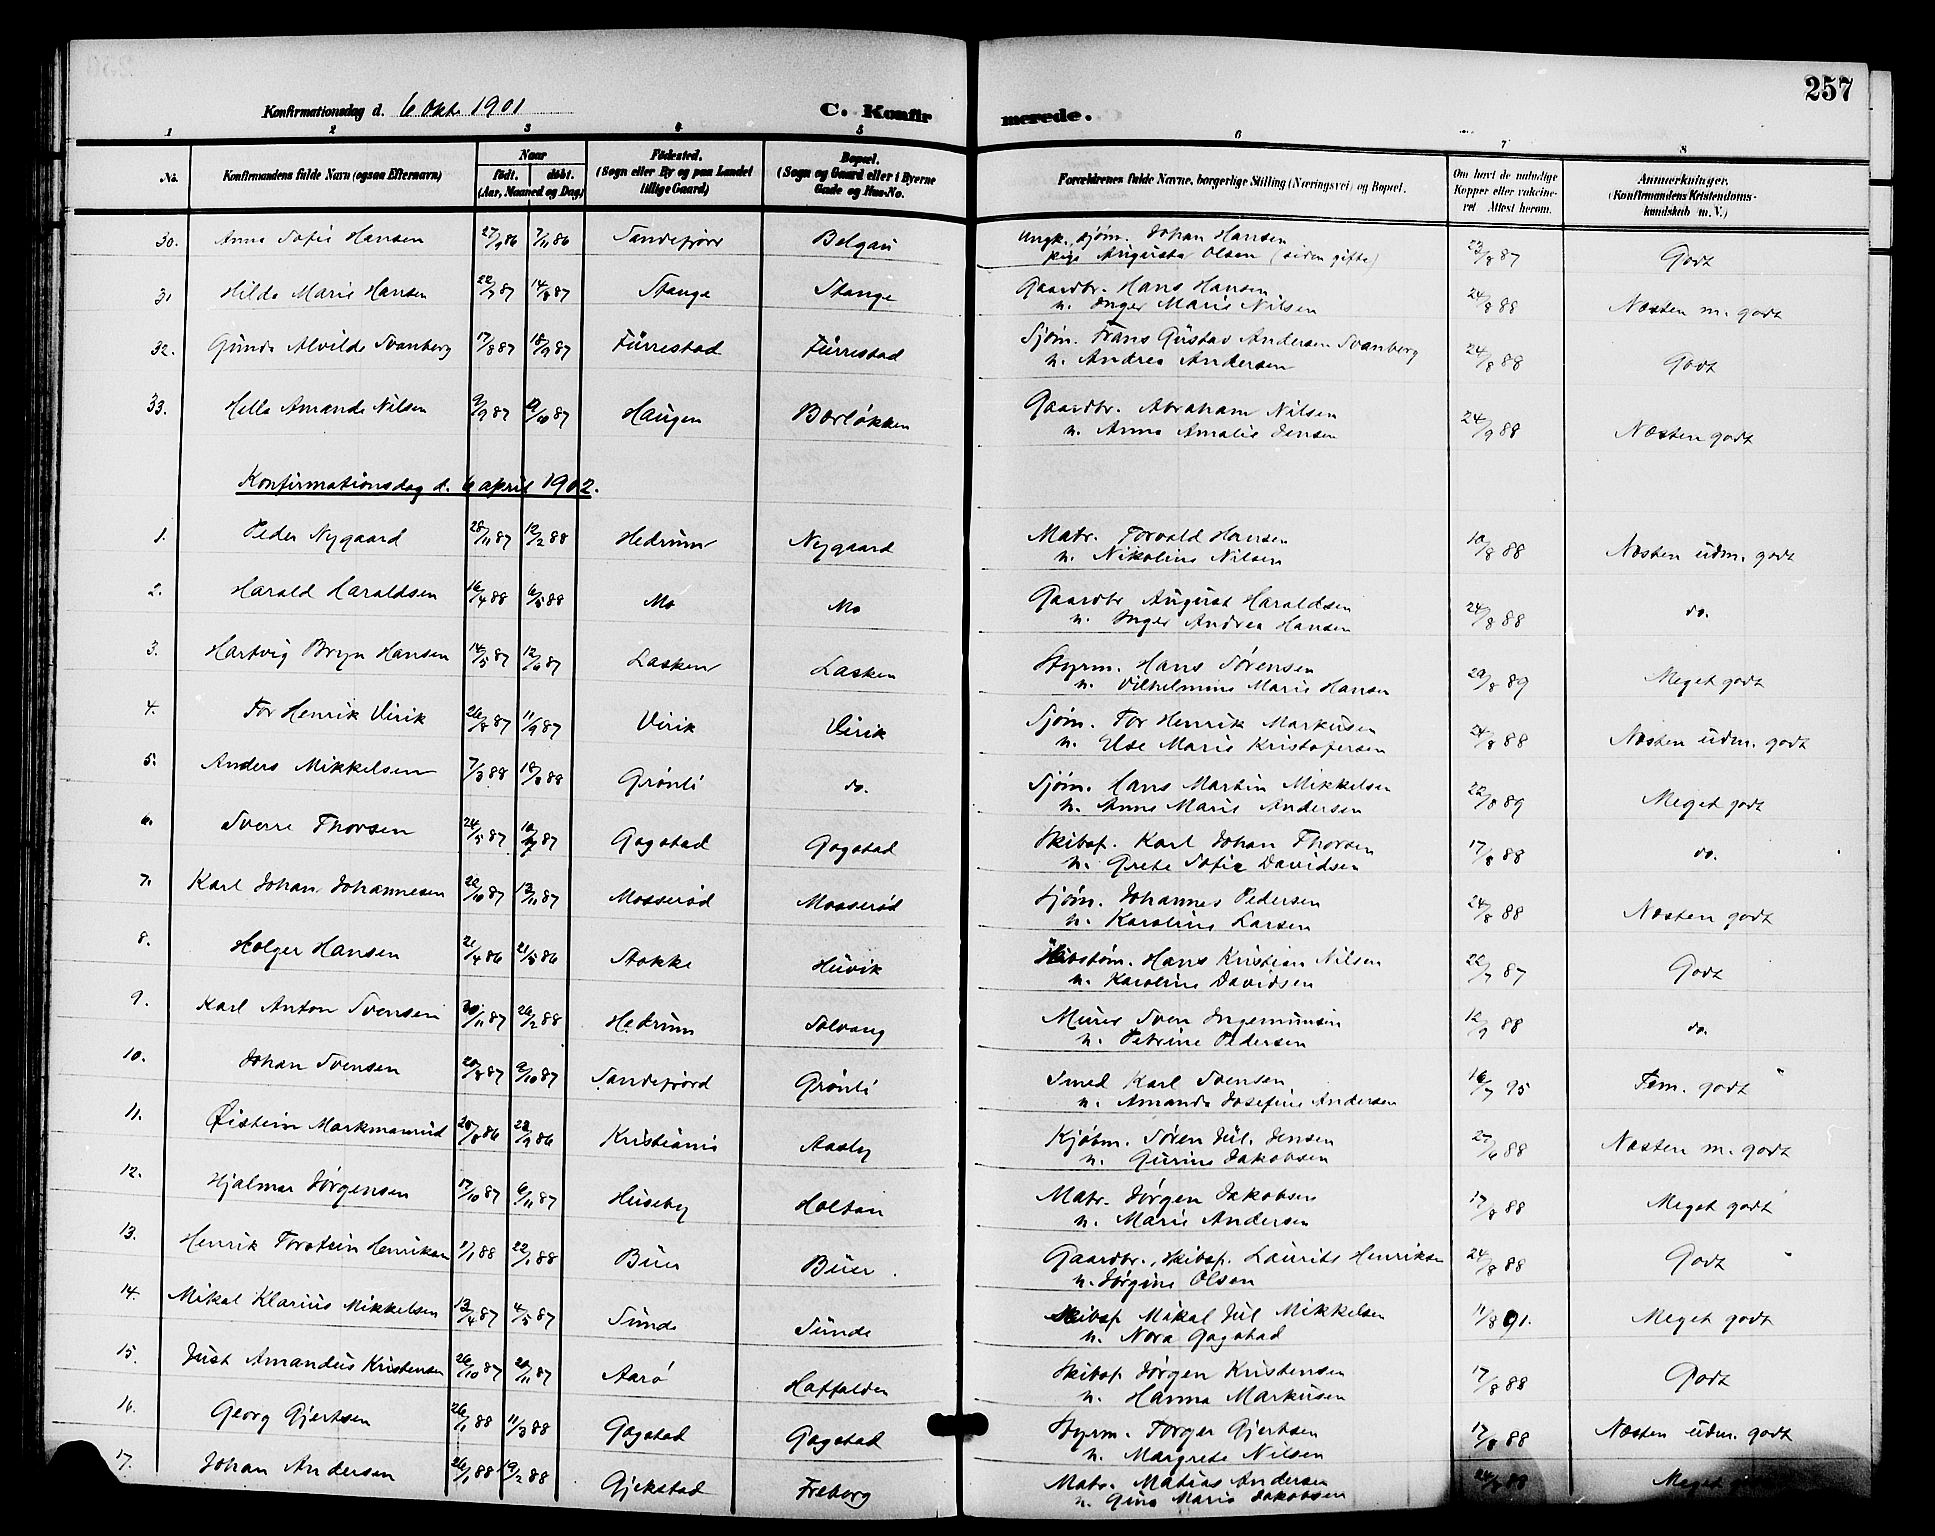 257
Konfirmationsdag d. 6 Okt. 1901 C. Konfirmerede.
1 2 3 4 5 6 7 8
No. Konfirmandens fulde Navn (ogsaa Efternavn) Naar født. døbt. (Aar, Maaned og Dag) Fødested. (Sogn eller By og paa Landet tillige Gaard) Bopæl. (Sogn og Gaard eller i Byerne Gade og Hus-No. Forældrenes fulde Navne, borgerlige Stilling (Næringsvei) og Bopæl. Om havt de naturlige Kopper eller vakcineret Attest herom. Anmærkninger. (Konfirmandens Kristendomskundskab m. V.)
30. Anna Sofie Hansen 27/9 86 7/11 86 Sandefjord Belgau Ungk. sjøm. Johan Hansen 23/8 87 Godt
pige Augusta Olsen (siden gifte)
31 Hilda Marie Hansen 22/7 87 14/8 87 Stange Stange Gaardbr. Hans Hansen 24/8 88 Næsten m. godt
u. Inger Marie Nilsen
32. Gunda Alvilde Svanberg 17/8 87 18/9 87 Furrestad Furrestad Sjøm. Frans Gustav Andersen Svanberg 24/8 88 Godt
u. Andrea Andersen
33. Hella Amanda Nilsen 9/9 87 Haugen Bærløkken Gaardbr. Abraham Nilsen 24/9 88 Næsten godt
u. Anna Amalie Jensen
Konfirmationsdag d. 6 april 1902.
1. Peder Nygaard 28/11 87 12/2 88 Hedrum Nygaard Matr. Torvald Hansen 10/8 88 Næsten udm. godt
u. Nikoline Nilsen
2. Harald Haraldsen 16/4 88 6/5 88 Mo Mo Gaardbr August Haraldsen 24/8 88 do.
u. Inger Andrea Hansen
3. Hartvig Bryn Hansen 14/5 87 12/6 87 Lasken Lasken Styrm. Hans Sørensen 29/8 89 Meget godt
u. Vilhelmine Marie Hansen
4. Tor Henrik Virik 26/8 87 11/9 87 Virik Virik Sjøm. Tor Henrik Markusen 24/8 88 Næsten udm. godt
u. Else Marie Kristofersen
5. Anders Mikkelsen 7/3 88 18/3 88 Grønli do. Sjøm. Hans Martin Mikkelsen 22/8 89 Meget godt
u. Anne Marie Andersen
6. Sverre Thorsen 24/5 87 10/7 87 Gogstad Gogstad Skibsf. Karl Johan Thorsen 17/8 88 do.
u. Grete Sofie Davidsen
7. Karl Johan Johannesen 22/10 87 13/11 87 Mosserød Mosserød Sjøm. Johannes Pedersen 24/8 88 Næsten godt
u. Karoline Larsen
8. Holger Hansen 21/4 86 21/5 86 Stokke Huvik Skibstøm. Hans Kristian Nilsen 22/7 87 Godt
u. Karoline Davidsen
9. Karl Anton Svensen 30/11 87 26/2 88 Hedrum Solvang Murer Sven Ingemunsen 12/9 88 do.
u. Petrine Pedersen
10. Johan Svensen 20/8 87 2/10 87 Sandefjord Grønli Smed Karl Svensen 16/7 95 Tem. godt
u. Amanda Josefine Andersen
11. Øistein Markmanrud 20/8 86 28/9 86 Kristiania Aasly Kjøbm. Søren Jul. Jensen 27/6 88 Næsten m. godt
u. Gurine Jakobsen
12. Hjalmar Jørgensen 17/10 87 6/11 87 Huseby Holtan Matr. Jørgen Jakobsen 17/8 88 Meget godt
u. Marie Andersen
13. Henrik Torstein Henriksen 1/1 88 22/1 88 Buer Buer Gaardbr., Skibsf. Laurits Henriksen 24/8 88 Godt
u. Jørgine Olsen
14. Mikal Klarius Mikkelsen 13/4 87 4/5 87 Sunde Sunde Skibsf Mikal Jul Mikkelsen 11/8 91. Meget godt
u. Nora Gogstad
15. Just Amandus Kristensen 26/10 87 20/11 87 Aarø Haffalden Skibsf Jørgen Kristensen 17/8 88 Godt
u. Hanna Markusen
16. Georg Gjertsen 26/1 88 11/3 88 Gogstad Gogstad Styrm. Torger Gjertsen 17/8 88 Næsten udm. godt
u. Margrete Nilsen
17. Johan Andersen 26/1 88 19/2 88 Gjekstad Freberg Matr. Matias Andersen 24/8 88 Meget
u. Gina Marie Jakobsen